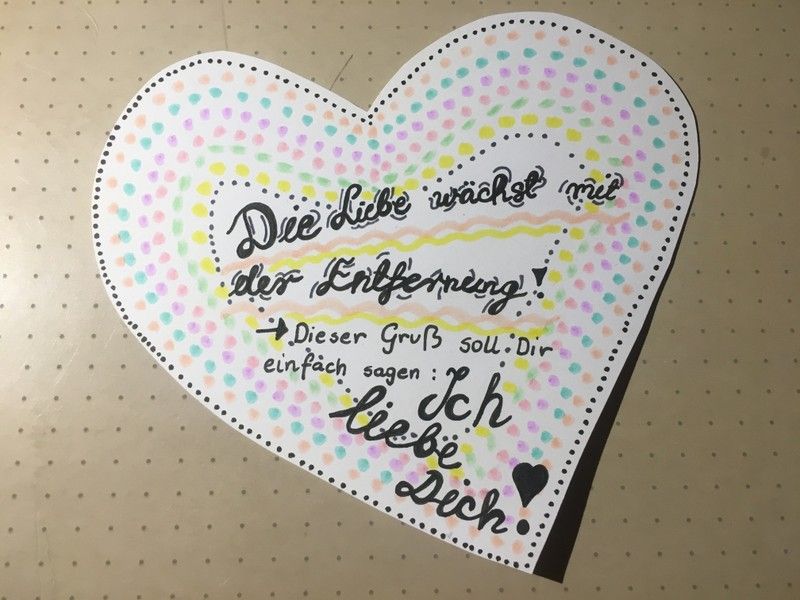 Die Liebe wächst mit
der Entfernung!
→ Dieser Gruß soll Dir
einfach sagen: Ich
liebe
Dich!